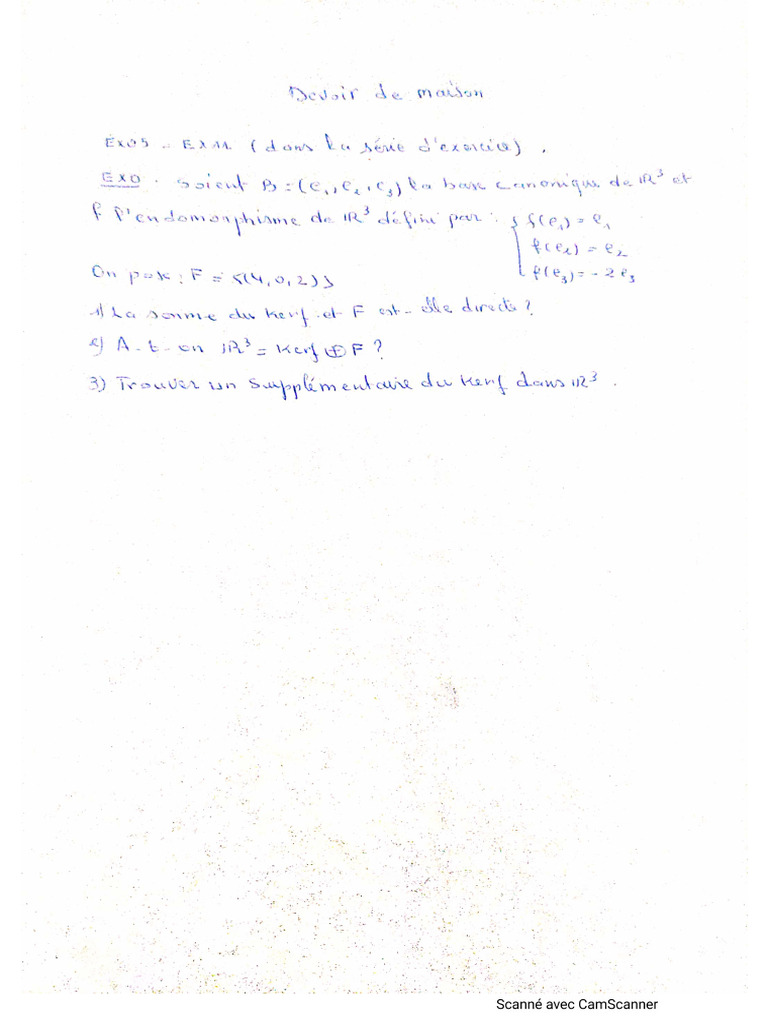 Devoir de maison
Exo5 - Ex11 (dans la série d'exercice).
EXO. Soient B = (e₁, e₂, e₃) la base canonique de IR³ et
f l'endomorphisme de IR³ défini par : { f(e₁) = e₁
f(e₂) = e₂
On pose : F = <(4,0,2)> f(e₃) = -2e₃
1) La somme du Kerf et F est-elle directe ?
2) A-t-on IR³ = Kerf ⊕ F ?
3) Trouver un supplémentaire du Kerf dans IR³.
Scanné avec CamScanner